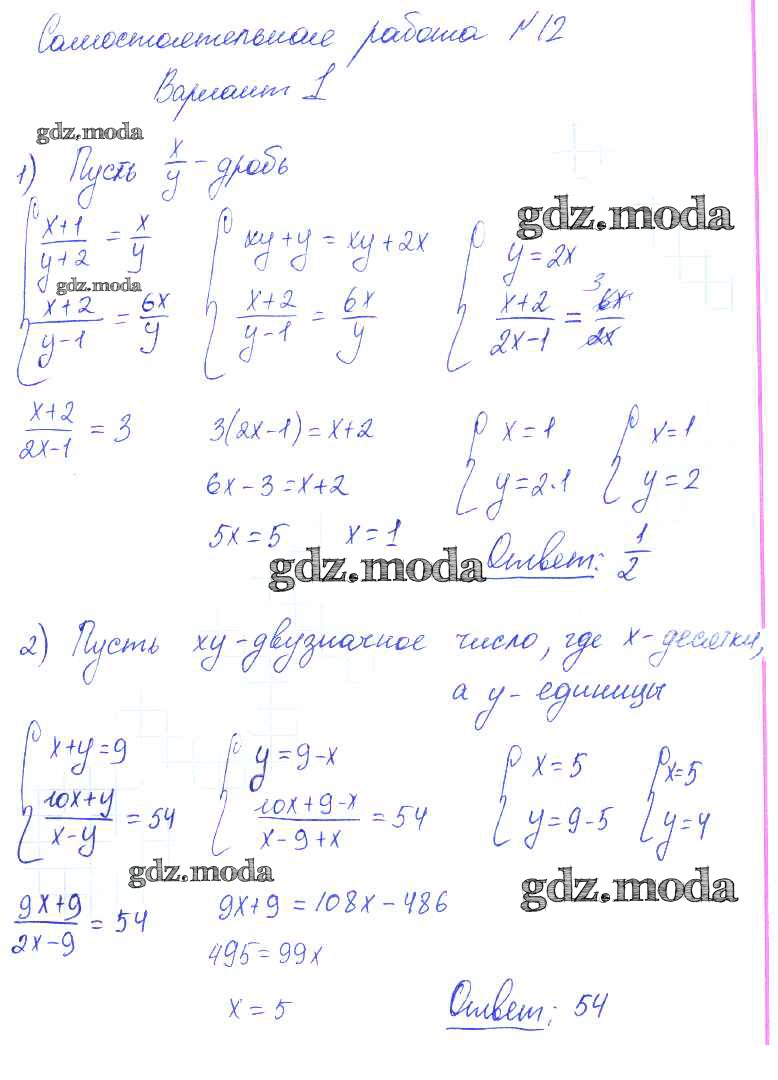 Самостоятельная работа №12
Вариант 1
gdz.moda
1) Пусть x/y - дробь
gdz.moda
{ (x+1)/(y+2) = x/y
gdz.moda
(x+2)/(y-1) = 6x/y
{ xy+y = xy+2x
(x+2)/(y-1) = 6x/y
{ y=2x
(x+2)/(2x-1) = 6x/2x 3
(x+2)/(2x-1) = 3
3(2x-1)=x+2
6x-3=x+2
5x=5 x=1
{ x=1
y=2·1
{ x=1
y=2
gdz.moda
Ответ: 1/2
2) Пусть xy - двузначное число, где x - десятки,
а y - единицы
{ x+y=9
(10x+y)/(x-y) = 54
{ y=9-x
(10x+9-x)/(x-9+x) = 54
{ x=5
y=9-5
{ x=5
y=4
gdz.moda
gdz.moda
(9x+9)/(2x-9) = 54
9x+9=108x-486
495=99x
x=5
Ответ: 54